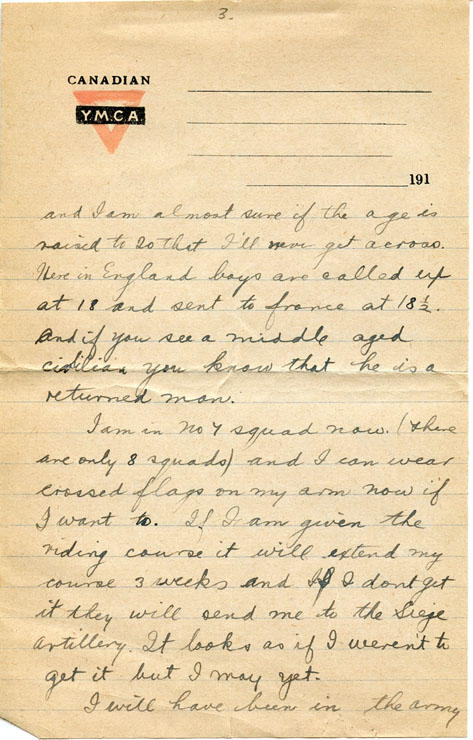 3.
CANADIAN
YMCA
191
and I am almost sure if the age is
raised to 20 that I'll never get across.
Here in England boys are called up
at 18 and sent to france at 18½.
And if you see a middle aged
civilian you know that he is a
returned man.
I am in No 7 squad now. (there
are only 8 squads) and I can wear
crossed flags on my arm now if
I want to. If I am given the
riding course it will extend my
course 3 weeks and If I dont get
it they will send me to the Siege
Artillery. It looks as if I weren't to
get it but I may yet.
I will have been in the army